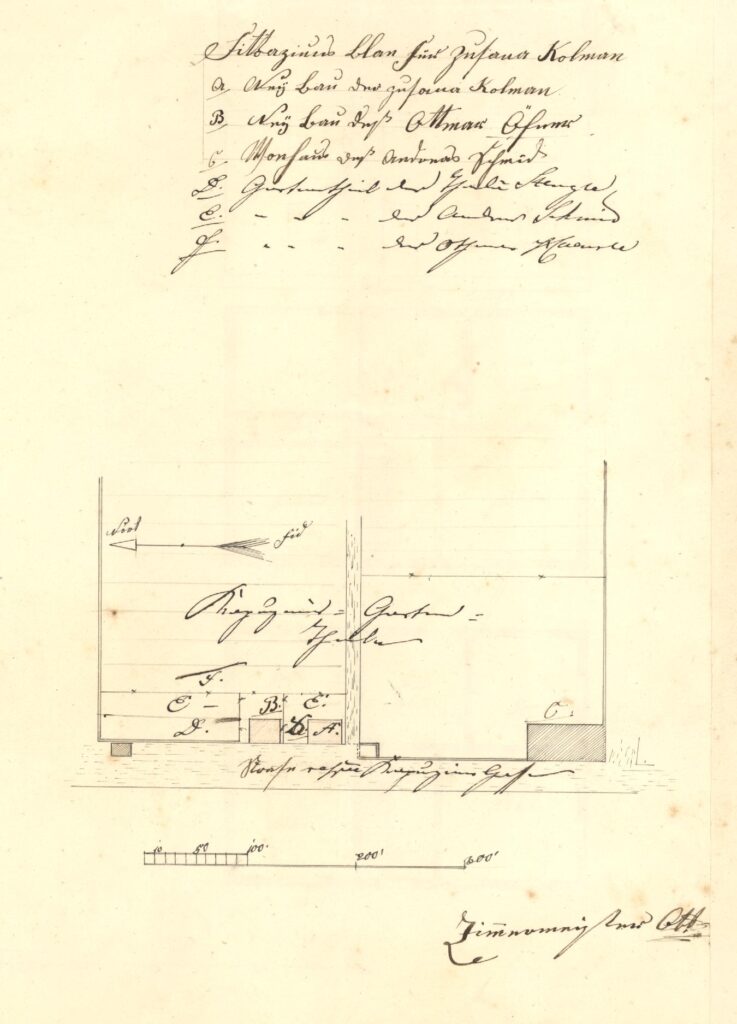 Sittaziuns blan für Zusana Kolman
A. Neÿ bau der Zusana Kolman
B. Neÿ bau deß Ottmar Öfner
C. Wonhaus deß Andreas Schmid
D. Gartentheil der
E. " " " der Andreas Schmid
F. " " " der Othmar
Nort
Sid
Kapuziner = Garten =
Theile
F.
E B. E.
D. A.
C.
Straße Kapuziner Gasse
10 50 100' 200' 300'
Zimmermeister Ott